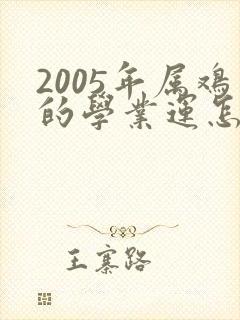 2005年属鸡
的學業運怎
王寨路